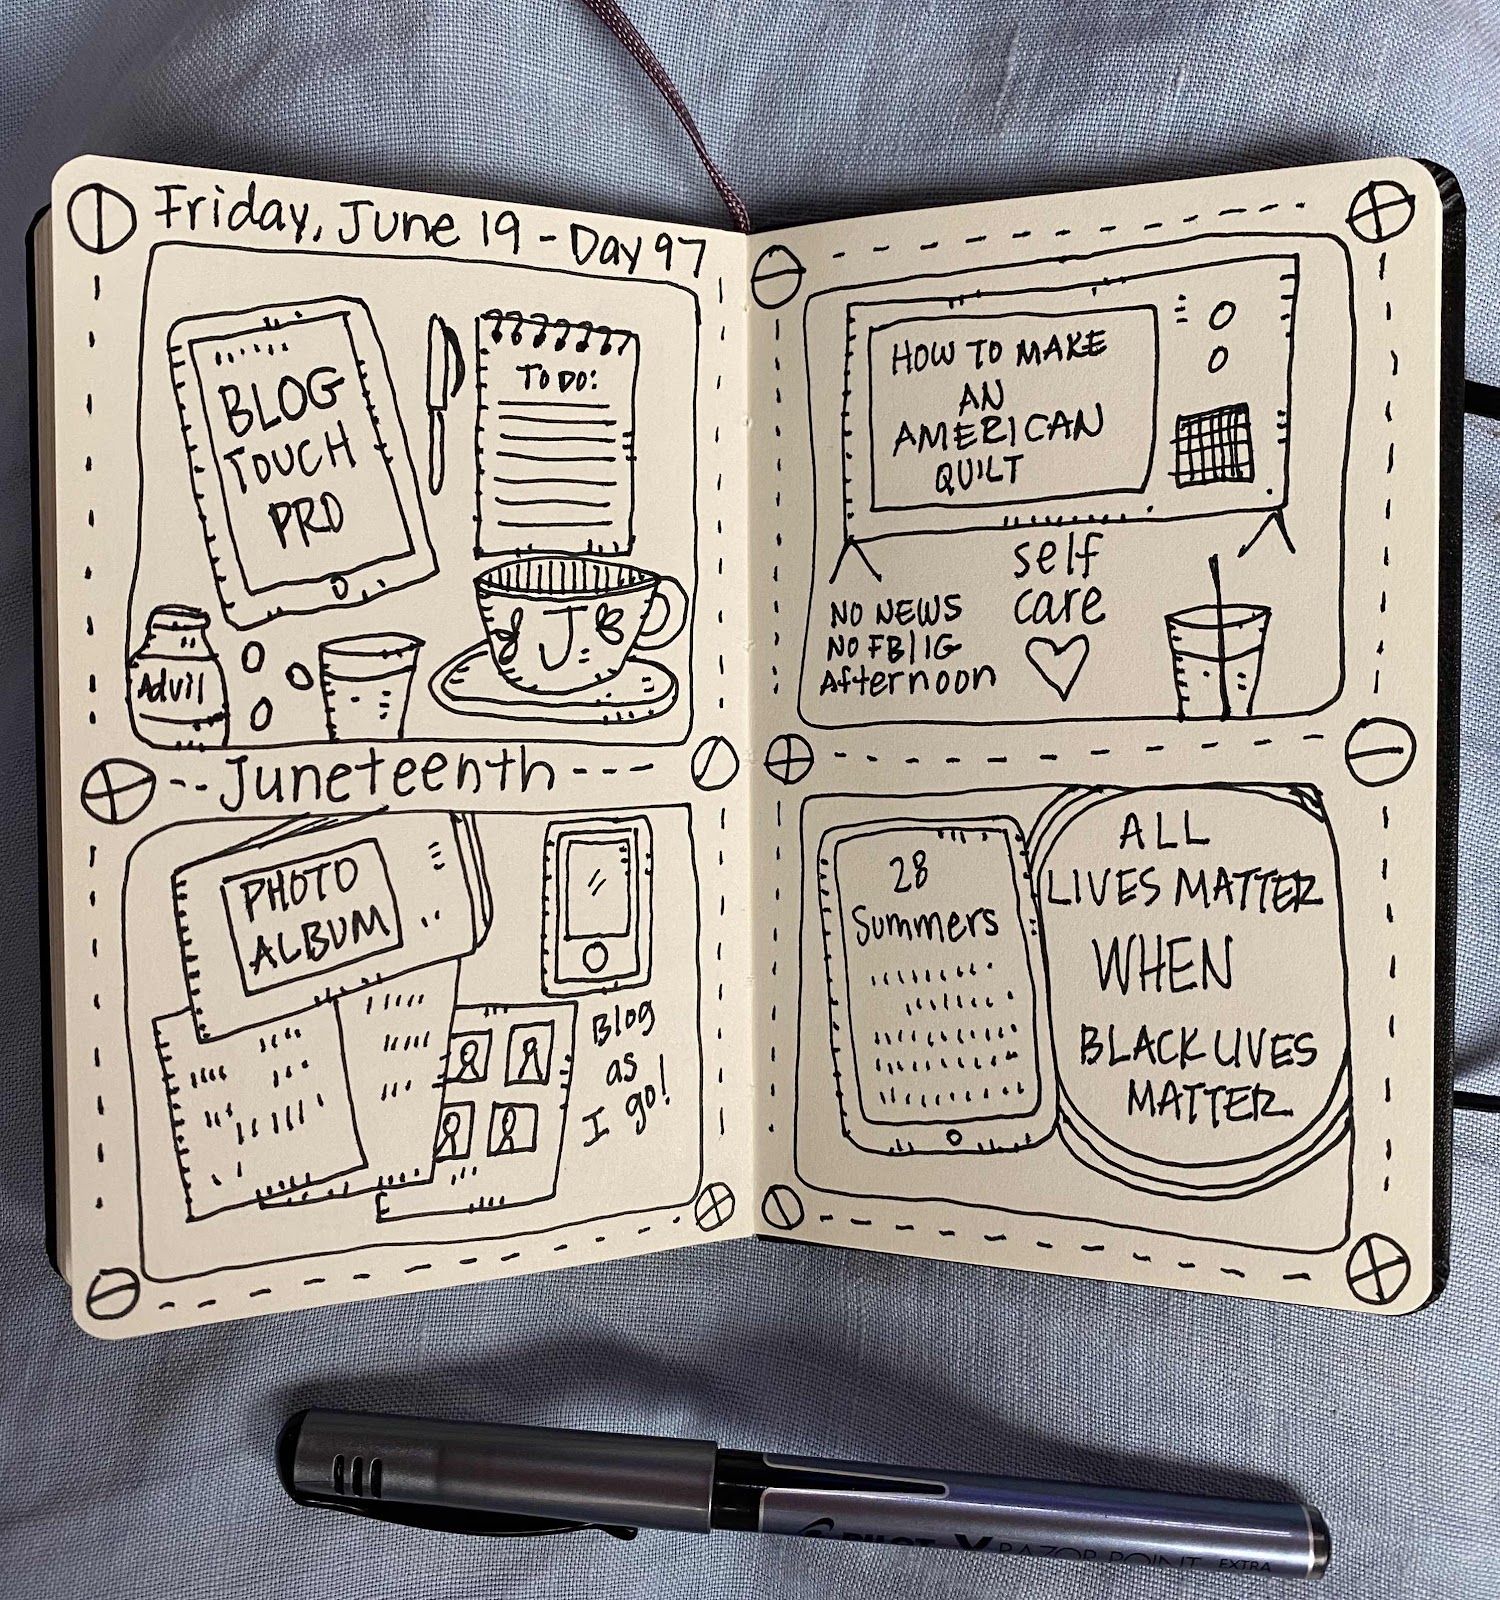 Friday, June 19 - Day 97
BLOG
TOUCH
PRO
TO DO:
J
Advil
Juneteenth
PHOTO
ALBUM
Blog
as
I go!
HOW TO MAKE
AN
AMERICAN
QUILT
self
care
NO NEWS
NO FB/IG
Afternoon
28
Summers
ALL
LIVES MATTER
WHEN
BLACK LIVES
MATTER
PILOT V RAZOR POINT EXTRA